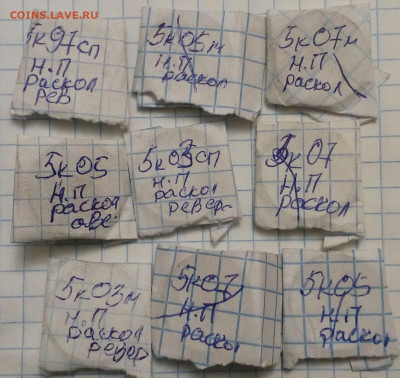 COINS.LAVE.RU
5к97сп
Н.П
раскол
рев
5к05м
Н.П
раскол
5к07м
Н.П
раскол
5к05
Н.П
раскол
аве
5к03сп
Н.П
раскол
ревер
5к07
Н.П
раскол
5к03м
Н.П
раскол
ревер
5к07
Н.П
раскол
5к05
Н.П
раскол